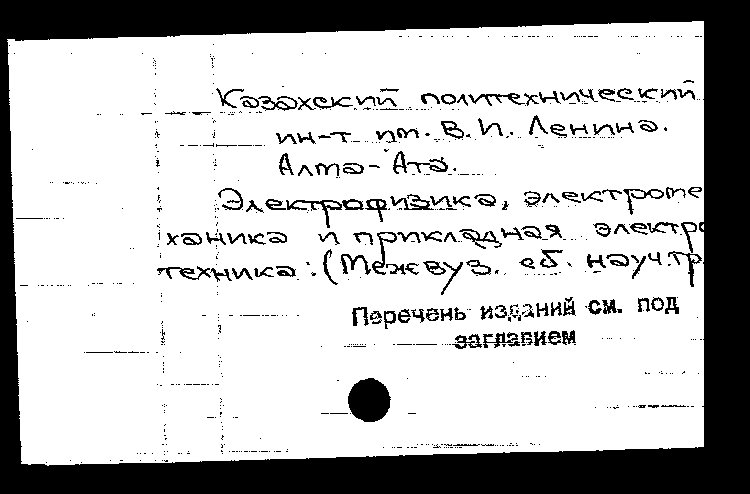 Казахский политехнический
ин-т им. В.И. Ленина.
Алма-Ата.
Электрофизика, электроме
ханика и прикладная электро
техника: (Межвуз. сб. науч.тр.
Перечень изданий см. под
заглавием